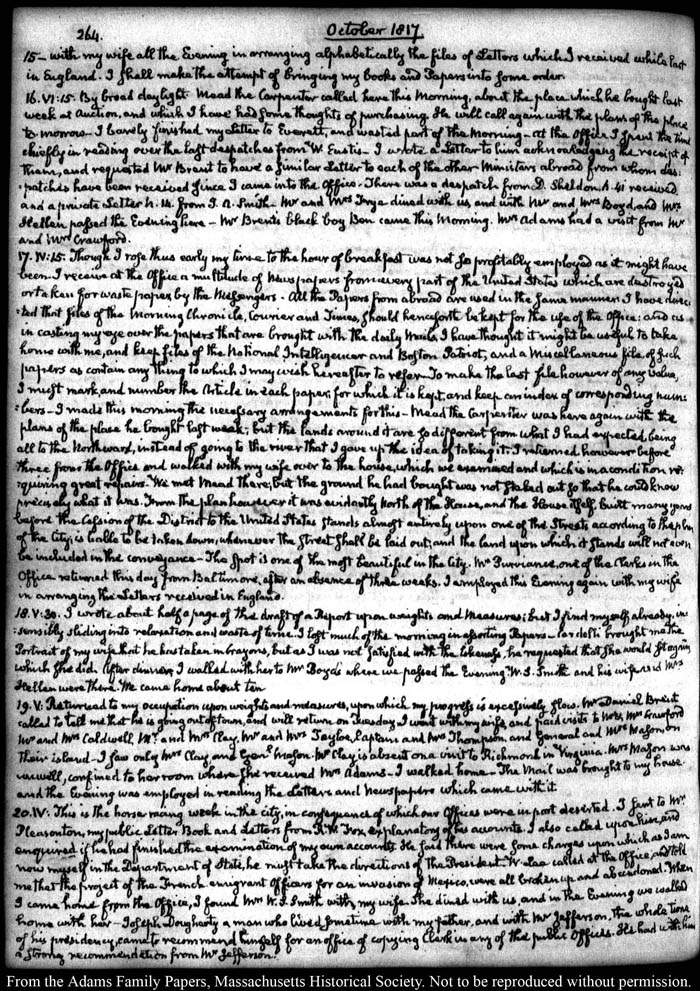 264. October 1817
15 - with my wife all the Evening in arranging alphabetically the files of Letters which I received while last
in England. I shall make the attempt of bringing my books and Papers into some order.
16. VI:15. By broad daylight. Mead the Carpenter called here this Morning, about the place which he bought last
week at Auction, and which I have had some thoughts of purchasing. He will call again with the plans of the place
to morrow - I barely finished my Letter to Everett, and wasted part of the Morning - At the Office I spent the time
chiefly in reading over the last despatches from W. Eustis - I wrote a Letter to him acknowledging the receipt of
them, and requested Mr Brent to have a similar Letter to each of the other Ministers abroad from whom des:
:patches have been received since I came into the Office. There was a despatch from D. Sheldon N. 41 received
and a private Letter N. 14. from J. A. Smith - Mr and Mrs Frye dined with us, and with Mr and Mrs Boyd, and Mrs
Hellen passed the Evening here - Mr Brent's black boy Ben came this Morning. Mrs Adams had a visit from Mr
and Mrs Crawford.
17. IV:15. Though I rose thus early my time to the hour of breakfast was not so profitably employed as it might have
been. I receive at the Office a multitude of Newspapers from every part of the United States which are destroyed
or taken for waste paper, by the Messengers - All the Papers from abroad are used in the same manner. I have direc
:ted that files of the Morning Chronicle, Courier and Times, should henceforth be kept for the use of the Office: and as
in casting my eye over the papers that are brought with the daily Mails, I have thought it might be useful to take
home with me, and keep files of the National Intelligencer and Boston Patriot, and a Miscellaneous file of such
papers as contain any thing to which I may wish hereafter to refer - To make the last file however of any value,
I must mark, and number the Article in each paper, for which it is kept, and keep an index of corresponding num:
:bers - I made this morning the necessary arrangements for this - Mead the Carpenter was here again with the
plans of the place he bought last week; but the lands around it are so different from what I had expected, being
all to the Northward, instead of going to the river that I gave up the idea of taking it. I returned however before
three from the Office and walked with my wife over to the house, which we examined and which is in a condition re:
:quiring great repairs. We met Mead there, but the ground he had bought was not staked out so that he could know
precisely what it was. From the plan however it was evidently North of the House, and the House itself, built many years
before the cession of the District to the United States stands almost entirely upon one of the Streets according to the plan
of the city, is liable to be taken down, whenever the street shall be laid out, and the land upon which it stands will not even
be included in the conveyance - The Spot is one of the most beautiful in the City. Mr Purviance, one of the Clerks in the
Office returned this day from Baltimore, after an absence of three weeks. I employed this Evening again with my wife
in arranging the Letters received in England.
18. V:30. I wrote about half a page of the draft of a Report upon weights and Measures; but I find myself already, in
sensibly sliding into relaxation and waste of time. I lost much of the morning in assorting Papers - Cardelli brought me the
Portrait of my wife that he has taken in crayons, but as I was not satisfied with the likeness, he requested that she would sit again
which she did. After dinner, I walked with her to Mr Boyd's where we passed the Evening. W. S. Smith and his wife and Mrs
Hellen were there. We came home about ten
19. V: Returned to my occupation upon weights and measures, upon which my progress is excessively slow. Mr Daniel Brent
called to tell me that he is going out of town, and will return on Tuesday. I went with my wife, and paid visits to Mr Crawford
Mr and Mrs Caldwell, Mr and Mrs Clay, Mr and Mrs Tayloe, Captain and Mrs Thompson, and General and Mrs Mason on
their island - I saw only Mrs Clay and Genl Mason. Mr Clay is absent on a visit to Richmond in Virginia. Mrs Mason was
unwell, confined to her room where she received Mrs Adams - I walked home - The Mail was brought to my house
and the Evening was employed in reading the Letters and Newspapers which came with it
20. IV: This is the horse racing week in the city, in consequence of which our Offices were in part deserted. I sent to Mr
Pleasonton, my public Letter Book and Letters from R. W. Fox, explanatory of his accounts. I also called upon him, and
enquired if he had finished the examination of my own accounts. He said there were some charges upon which as I am
now myself in the Department of State, he must take the directions of the President. W. Lee called at the Office, and told
me that the project of the French emigrant Officers for an invasion of Mexico, were all broken up and abandoned. When
I came home from the Office, I found Mrs W. S. Smith with my wife. She dined with us, and in the Evening we walked
home with her - Joseph Dougherty a man who lived sometime with my father, and with Mr Jefferson, the whole time
of his presidency, came to recommend himself for an office of copying Clerk in any of the public Offices. He had with him
a strong recommendation from Mr Jefferson.
From the Adams Family Papers, Massachusetts Historical Society. Not to be reproduced without permission.